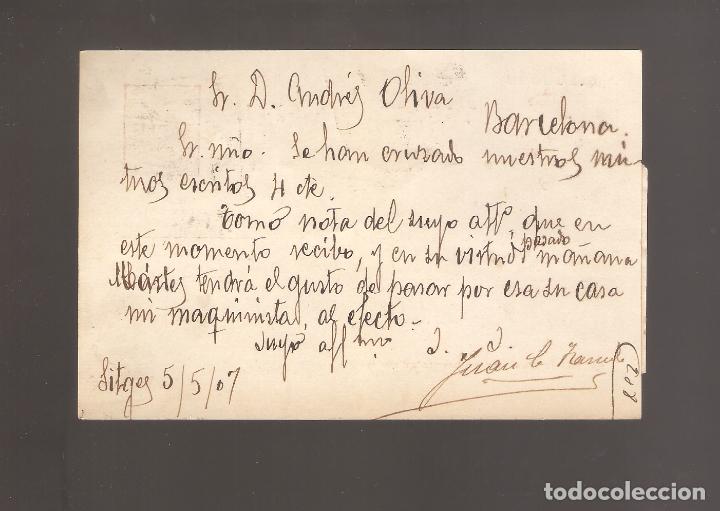 Sr. D. Andrés Oliva
Barcelona.
Sr. mío. Se han cruzado nuestros mú
tuos escritos 4 cte.
Tomo nota del suyo attº, que en
este momento recibo, y en su virtud pasado mañana
Mártes tendrá el gusto de pasar por esa su casa
mi maquinista, al efecto.
Suyo aff mo S. S.
Juan C
Sitges 5/5/07
todocoleccion
todocoleccion.net